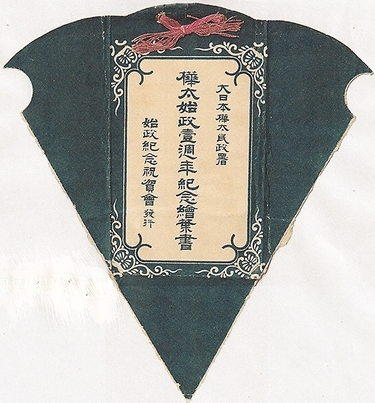 大日本樺太民政署
樺太始政壹週年紀念繪葉書
始政紀念祝賀會發行